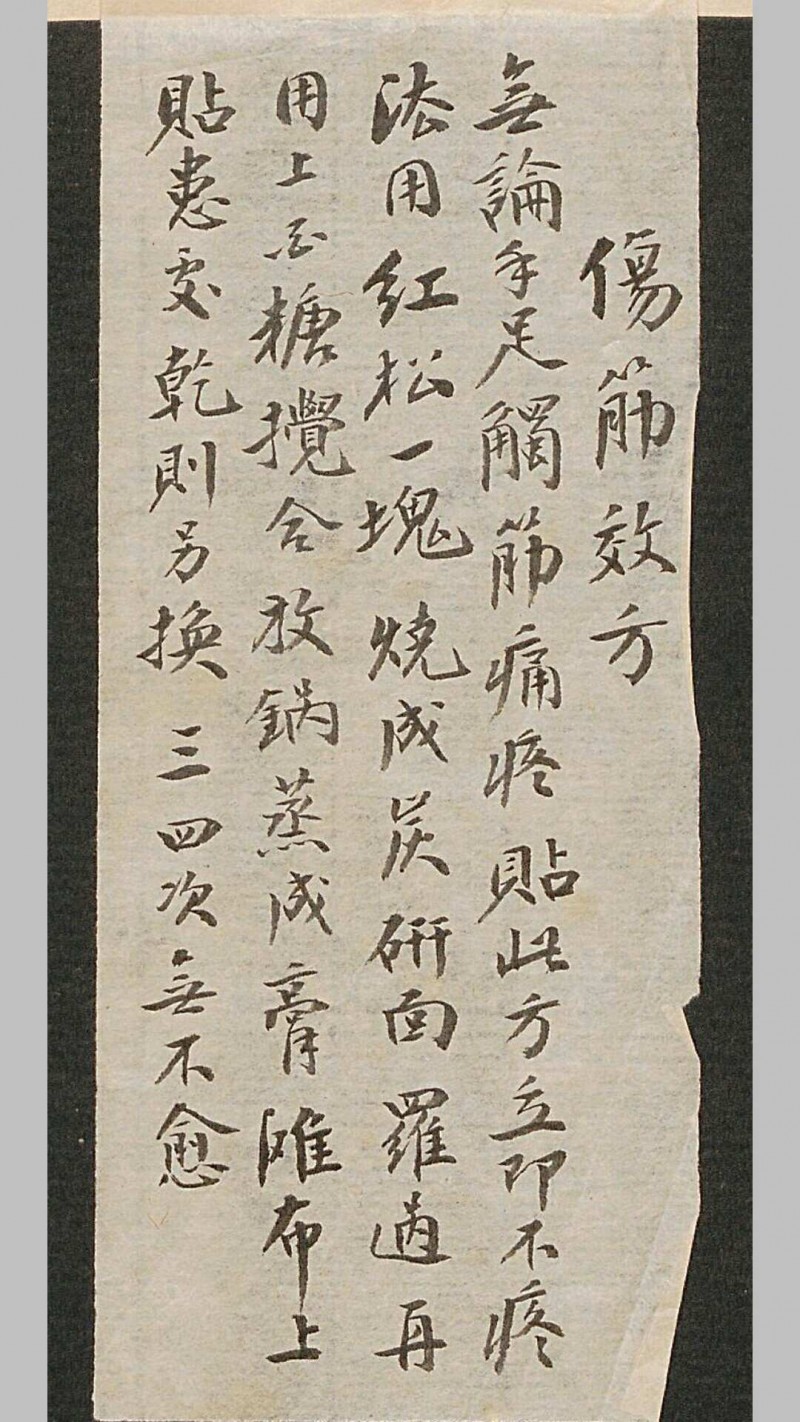 傷筋效方
無論手足觸筋痛疼貼此方立即不疼
法用紅松一塊燒成炭研面羅過再
用上白糖攪合放鍋蒸成膏灘布上
貼患处乾則另換三四次無不愈